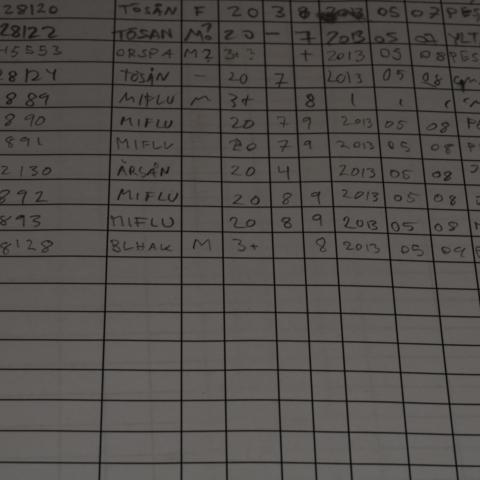 28120 TOSÅN F 20 3 8 2013 05 07 PES
28122 TOSÅN M? 20 - 7 2013 05 YLT
45553 ORSPA M? 3+? + 2013 05 08 PES
28124 TOSÅN - 20 7 2013 05 08
889 MIFLU M 3+ 8 ( ( (
890 MIFLU 20 7 9 2013 05 08
891 MIFLU 20 7 9 2013 05 08
2130 ÄRSÅN 20 4 2013 05 08
892 MIFLU 20 8 9 2013 05 08
893 MIFLU 20 8 9 2013 05 08
8128 BLHAK M 3+ 8 2013 05 09